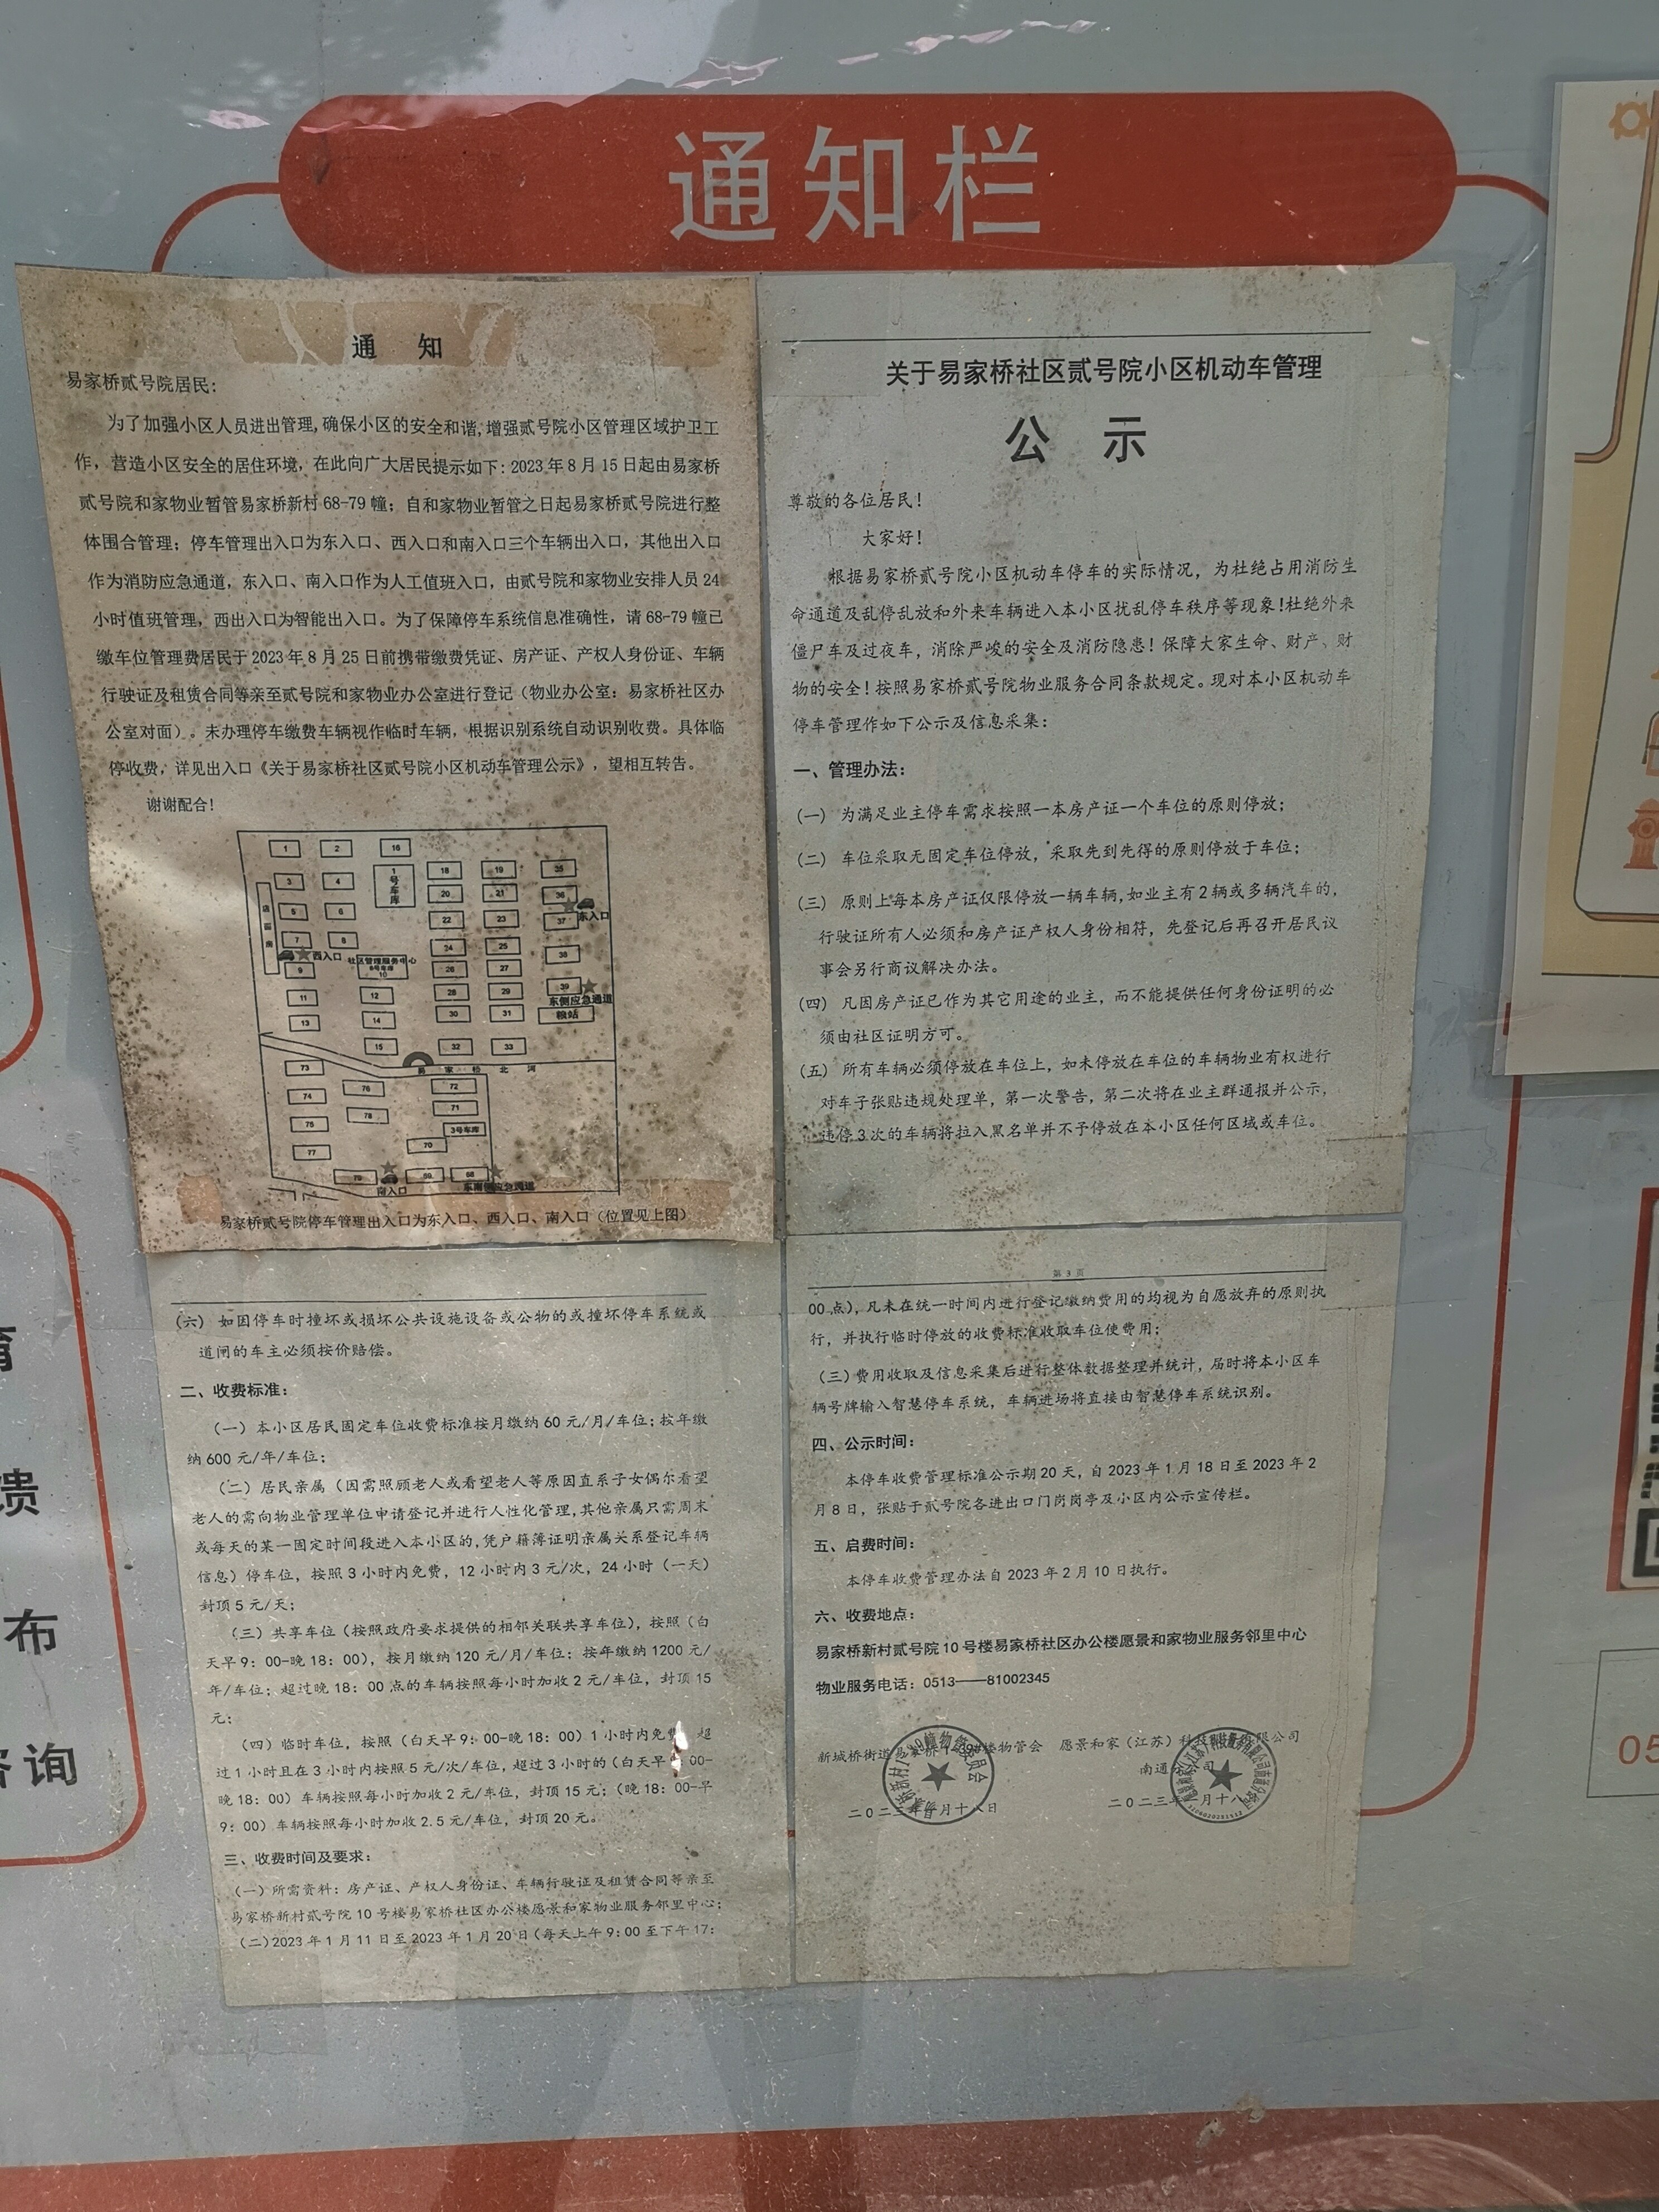 通知栏
通 知
易家桥贰号院居民:
为了加强小区人员进出管理,确保小区的安全和谐,增强贰号院小区管理区域护卫工
作，营造小区安全的居住环境，在此向广大居民提示如下: 2023年8月15日起由易家桥
贰号院和家物业暂管易家桥新村68-79幢；自和家物业暂管之日起易家桥贰号院进行整
体围合管理；停车管理出入口为东入口、西入口和南入口三个车辆出入口，其他出入口
作为消防应急通道，东入口、南入口作为人工值班入口，由贰号院和家物业安排人员24
小时值班管理，西出入口为智能出入口。为了保障停车系统信息准确性，请68-79幢已
缴车位管理费居民于2023年8月25日前携带缴费凭证、房产证、产权人身份证、车辆
行驶证及租赁合同等亲至贰号院和家物业办公室进行登记（物业办公室：易家桥社区办
公室对面）。未办理停车缴费车辆视作临时车辆，根据识别系统自动识别收费。具体临
停收费，详见出入口《关于易家桥社区贰号院小区机动车管理公示》，望相互转告。
谢谢配合!
1 2 16
1号车库 18 19 35
3 4 20 21 36
东入口
店面房
5 6 22 23 37
7 8 24 25 38
西入口 社区管理服务中心
9 10 26 27
11 12 28 29 39
东侧应急通道
13 14 30 31 粮站
15 32 33
易家桥北河
73 76 72
74 78 71
75 3号车库
77 70
79 69 68
南入口 东南侧应急通道
易家桥贰号院停车管理出入口为东入口、西入口、南入口（位置见上图）
关于易家桥社区贰号院小区机动车管理
公 示
尊敬的各位居民！
大家好！
根据易家桥贰号院小区机动车停车的实际情况，为杜绝占用消防生
命通道及乱停乱放和外来车辆进入本小区扰乱停车秩序等现象！杜绝外来
僵尸车及过夜车，消除严峻的安全及消防隐患！保障大家生命、财产、财
物的安全！按照易家桥贰号院物业服务合同条款规定。现对本小区机动车
停车管理作如下公示及信息采集：
一、管理办法：
（一） 为满足业主停车需求按照一本房产证一个车位的原则停放；
（二） 车位采取无固定车位停放，采取先到先得的原则停放于车位；
（三） 原则上每本房产证仅限停放一辆车辆,如业主有2辆或多辆汽车的，
行驶证所有人必须和房产证产权人身份相符，先登记后再召开居民议
事会另行商议解决办法。
（四） 凡因房产证已作为其它用途的业主，而不能提供任何身份证明的必
须由社区证明方可。
（五） 所有车辆必须停放在车位上，如未停放在车位的车辆物业有权进行
对车子张贴违规处理单，第一次警告，第二次将在业主群通报并公示，
违停3次的车辆将拉入黑名单并不予停放在本小区任何区域或车位。
（六） 如因停车时撞坏或损坏公共设施设备或公物的或撞坏停车系统或
道闸的车主必须按价赔偿。
二、收费标准：
（一）本小区居民固定车位收费标准按月缴纳60元/月/车位；按年缴
纳600元/年/车位；
（二）居民亲属（因需照顾老人或看望老人等原因直系子女偶尔看望
老人的需向物业管理单位申请登记并进行人性化管理,其他亲属只需周末
或每天的某一固定时间段进入本小区的,凭户籍簿证明亲属关系登记车辆
信息）停车位，按照3小时内免费，12小时内3元/次，24小时（一天）
封顶5元/天；
（三）共享车位（按照政府要求提供的相邻关联共享车位），按照（白
天早9：00-晚18：00），按月缴纳120元/月/车位；按年缴纳1200元/
年/车位；超过晚18：00点的车辆按照每小时加收2元/车位，封顶15
元；
（四）临时车位，按照（白天早9：00-晚18：00）1小时内免费 超
过1小时且在3小时内按照5元/次/车位，超过3小时的（白天早 00-
晚18：00）车辆按照每小时加收2元/车位，封顶15元；（晚18：00-早
9：00）车辆按照每小时加收2.5元/车位，封顶20元。
三、收费时间及要求：
（一）所需资料：房产证、产权人身份证、车辆行驶证及租赁合同等亲至
易家桥新村贰号院10号楼易家桥社区办公楼愿景和家物业服务邻里中心；
（二）2023年1月11日至2023年1月20日（每天上午9：00至下午17：
第 3 页
00点），凡未在统一时间内进行登记缴纳费用的均视为自愿放弃的原则执
行，并执行临时停放的收费标准收取车位使费用；
（三）费用收取及信息采集后进行整体数据整理并统计，届时将本小区车
辆号牌输入智慧停车系统，车辆进场将直接由智慧停车系统识别。
四、公示时间：
本停车收费管理标准公示期20天，自2023年1月18日至2023年2
月8日，张贴于贰号院各进出口门岗岗亭及小区内公示宣传栏。
五、启费时间：
本停车收费管理办法自2023年2月10日执行。
六、收费地点：
易家桥新村贰号院10号楼易家桥社区办公楼愿景和家物业服务邻里中心
物业服务电话：0513——81002345
新城桥街道易家桥 楼物管会 愿景和家（江苏）科技 有限公司
南通 公司
二0二三年 月十八日 二0二三年一月十八
馈
布
咨询
05